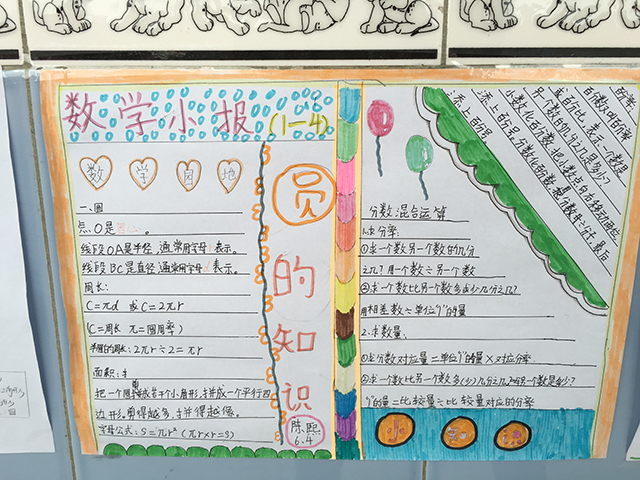 数学小报(1-4)
数学园地
圆的知识
陈熙
6.4
一、圆
点O是。
线段OA是半径,通常用字母表示。
线段BC是直径,通常用字母表示。
周长:
C=πd 或 C=2πr
(C=周长 π=圆周率)
半圆的周长:2πr÷2=πr
面积:
把一个圆剪成若干个小扇形,拼成一个平行四
边形,剪得越多,拼得越像。
字母公式:S=πr² (πr×r=S)
分数混合运算
1.求分率:
①求一个数另一个数的几分
之几?用一个数÷另一个数
②求一个数比另一个数多或少几分之几?
用相差数÷单位"1"的量
2.求数量:
①求分数对应量=单位"1"的量×对应分率
②求一个数比另一个数多(少)几分之几,另一个数是多少?
"1"的量=比较量÷比较量对应的分率
百分率
百分数,叫百分率
或百分比,表示一个数是
另一个数的几分之几是多少?
小数化百分数,把小数点向右移动两位
添上百分号,分数化百分数,
添上百分号。
小知识